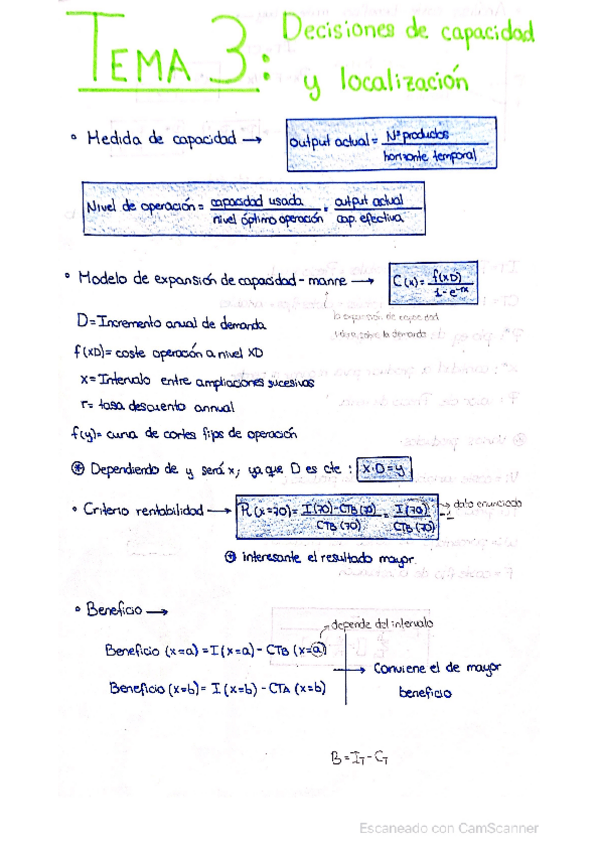 TEMA 3: Decisiones de capacidad
y localización
• Medida de capacidad → Output actual = Nº productos / horizonte temporal
Nivel de operación = capacidad usada / nivel óptimo operación = output actual / cap. efectiva
• Modelo de expansión de capacidad - manne → C(x) = f(xD) / 1-e^-rx
la expansión de capacidad
sobre la demanda
D = Incremento anual de demanda
f(XD) = coste operación a nivel XD
x = Intervalo entre ampliaciones sucesivas
r = tasa descuento annual
f(y) = curva de cortes fijos de operación
⊛ Dependiendo de y será x, ya que D es cte : X·D = y
• Criterio rentabilidad → R(x=70) = I(70) - CTB(70) / CTB(70) = I(70) / CTB(70) → dato enunciado
-1
⊛ interesante el resultado mayor.
• Beneficio →
depende del intervalo
Beneficio (x=a) = I(x=a) - CTB (x=a)
→ Conviene el de mayor
Beneficio (x=b) = I(x=b) - CTA (x=b)
beneficio
B = IT - CT
Escaneado con CamScanner